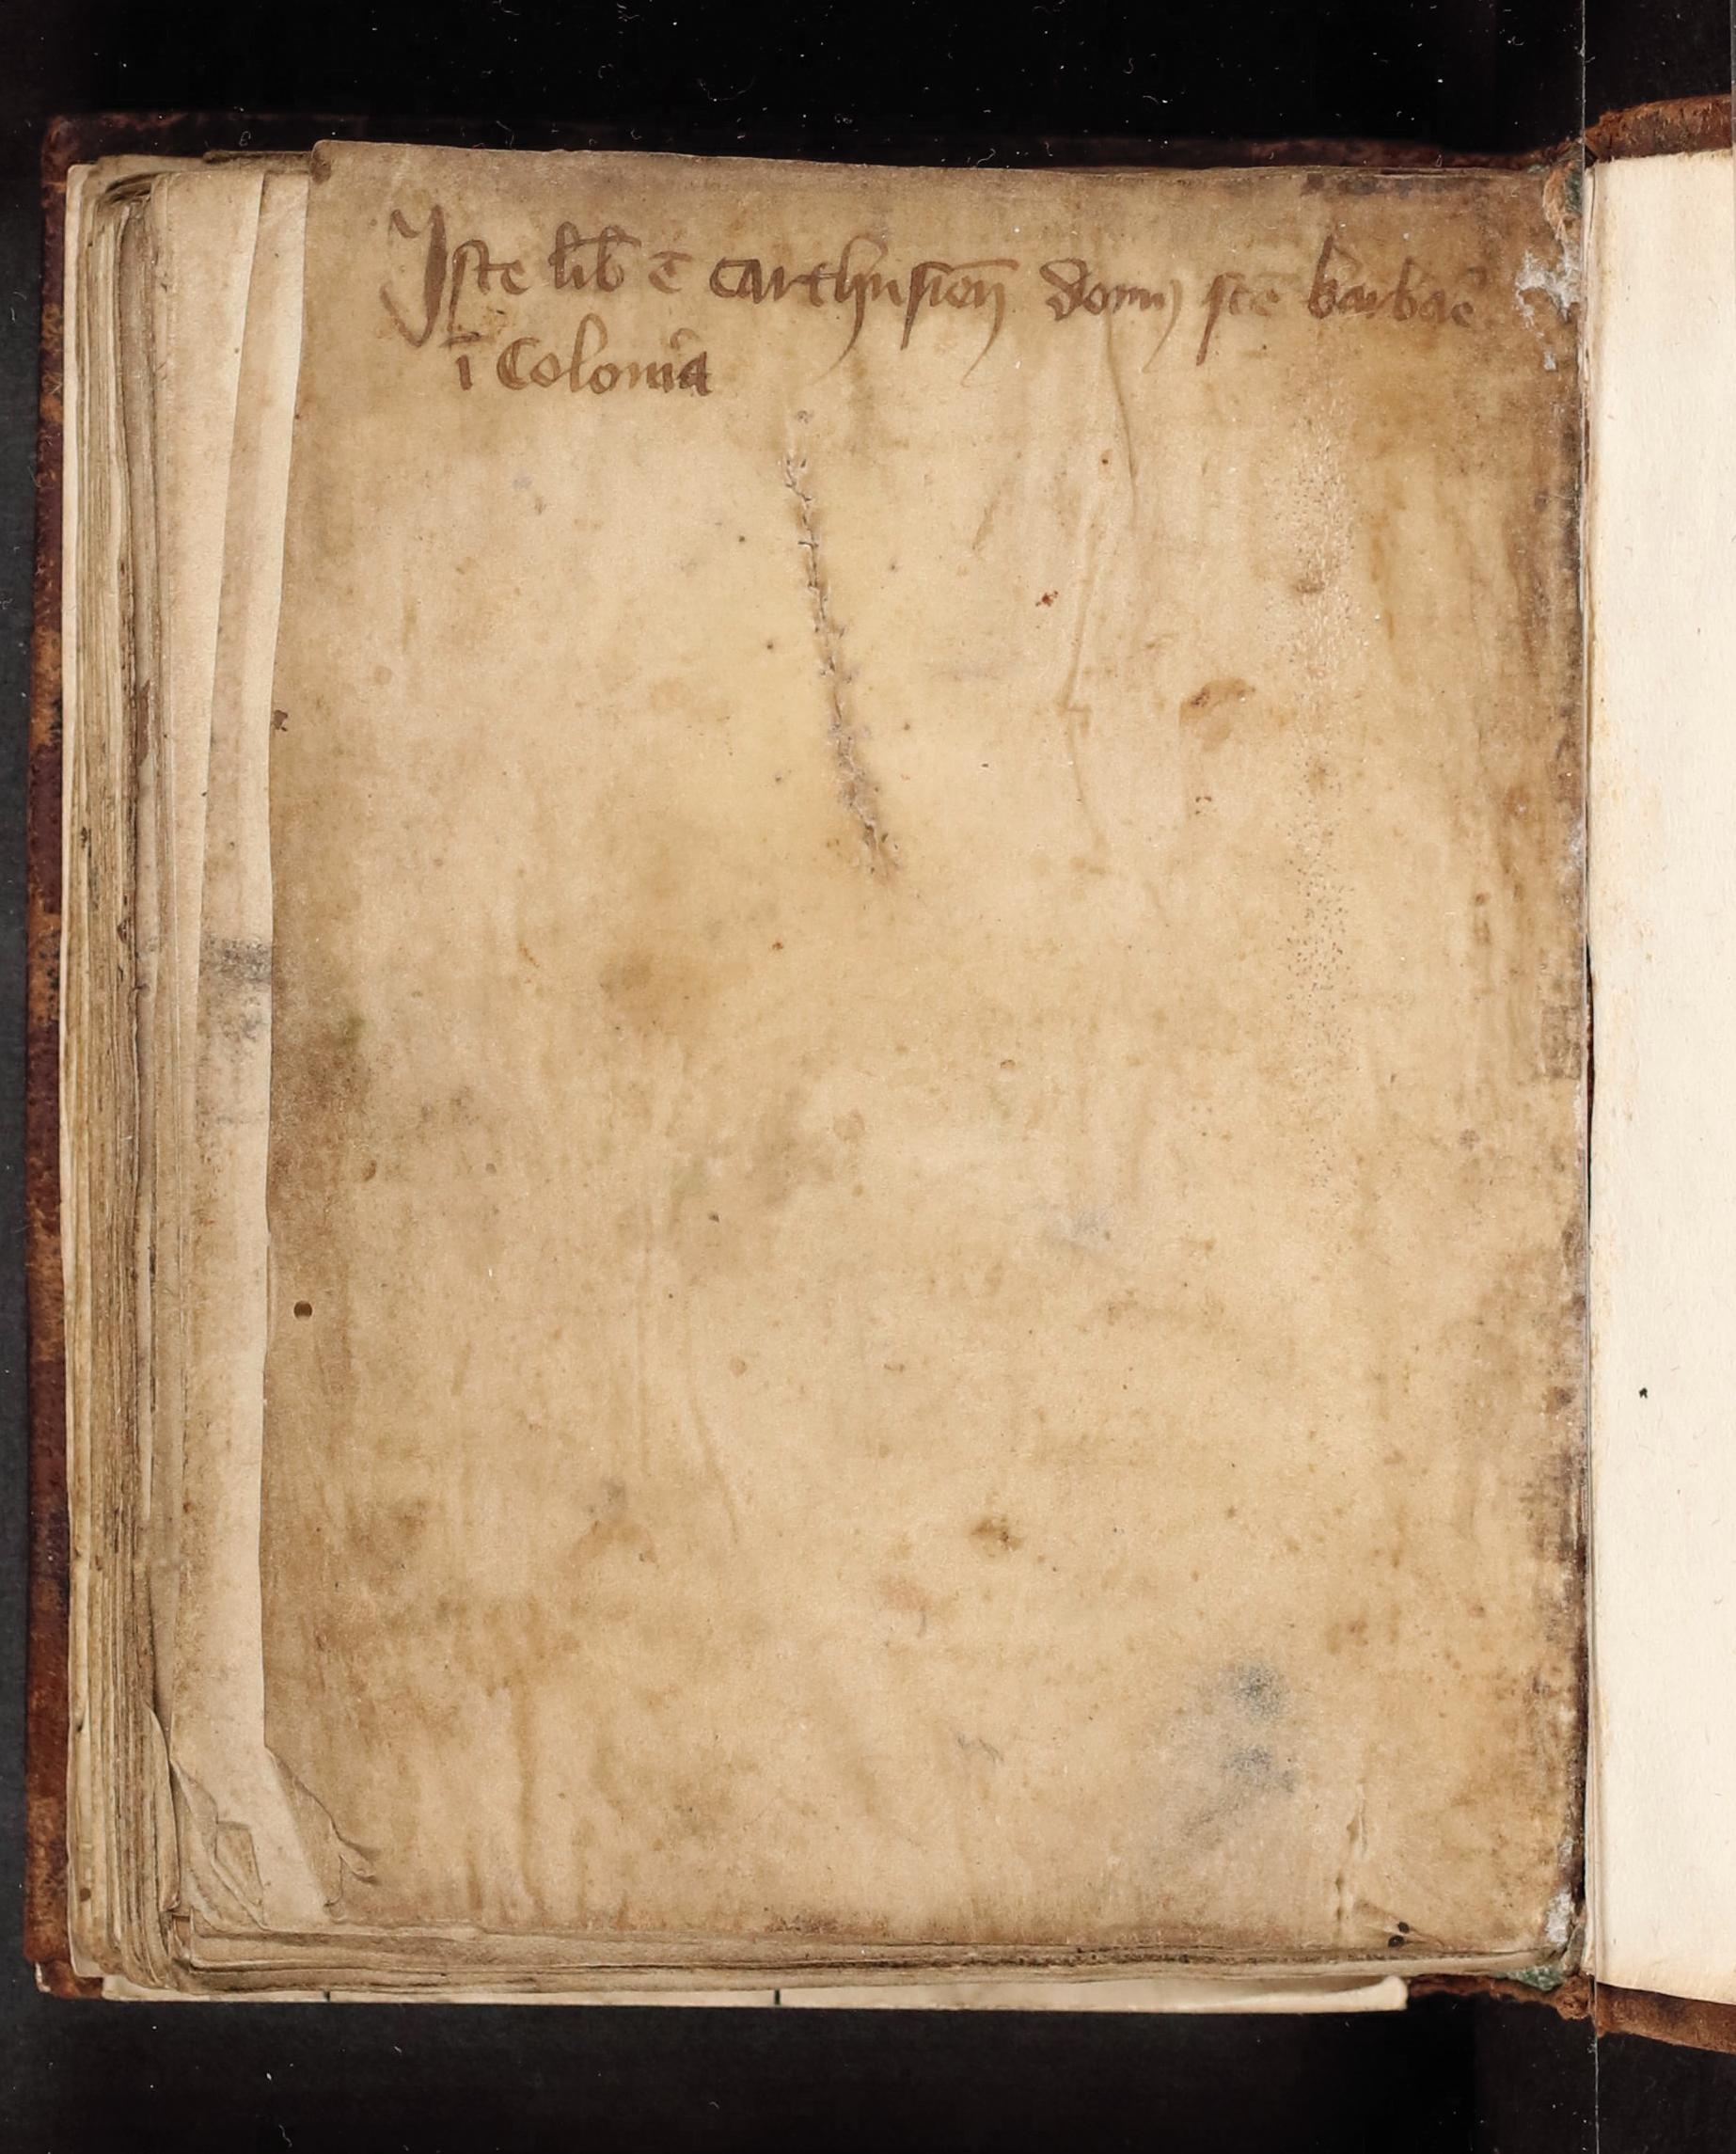 Iste lib̄ ē carthusien̄ domꝰ scē barbaē
ī Colonia